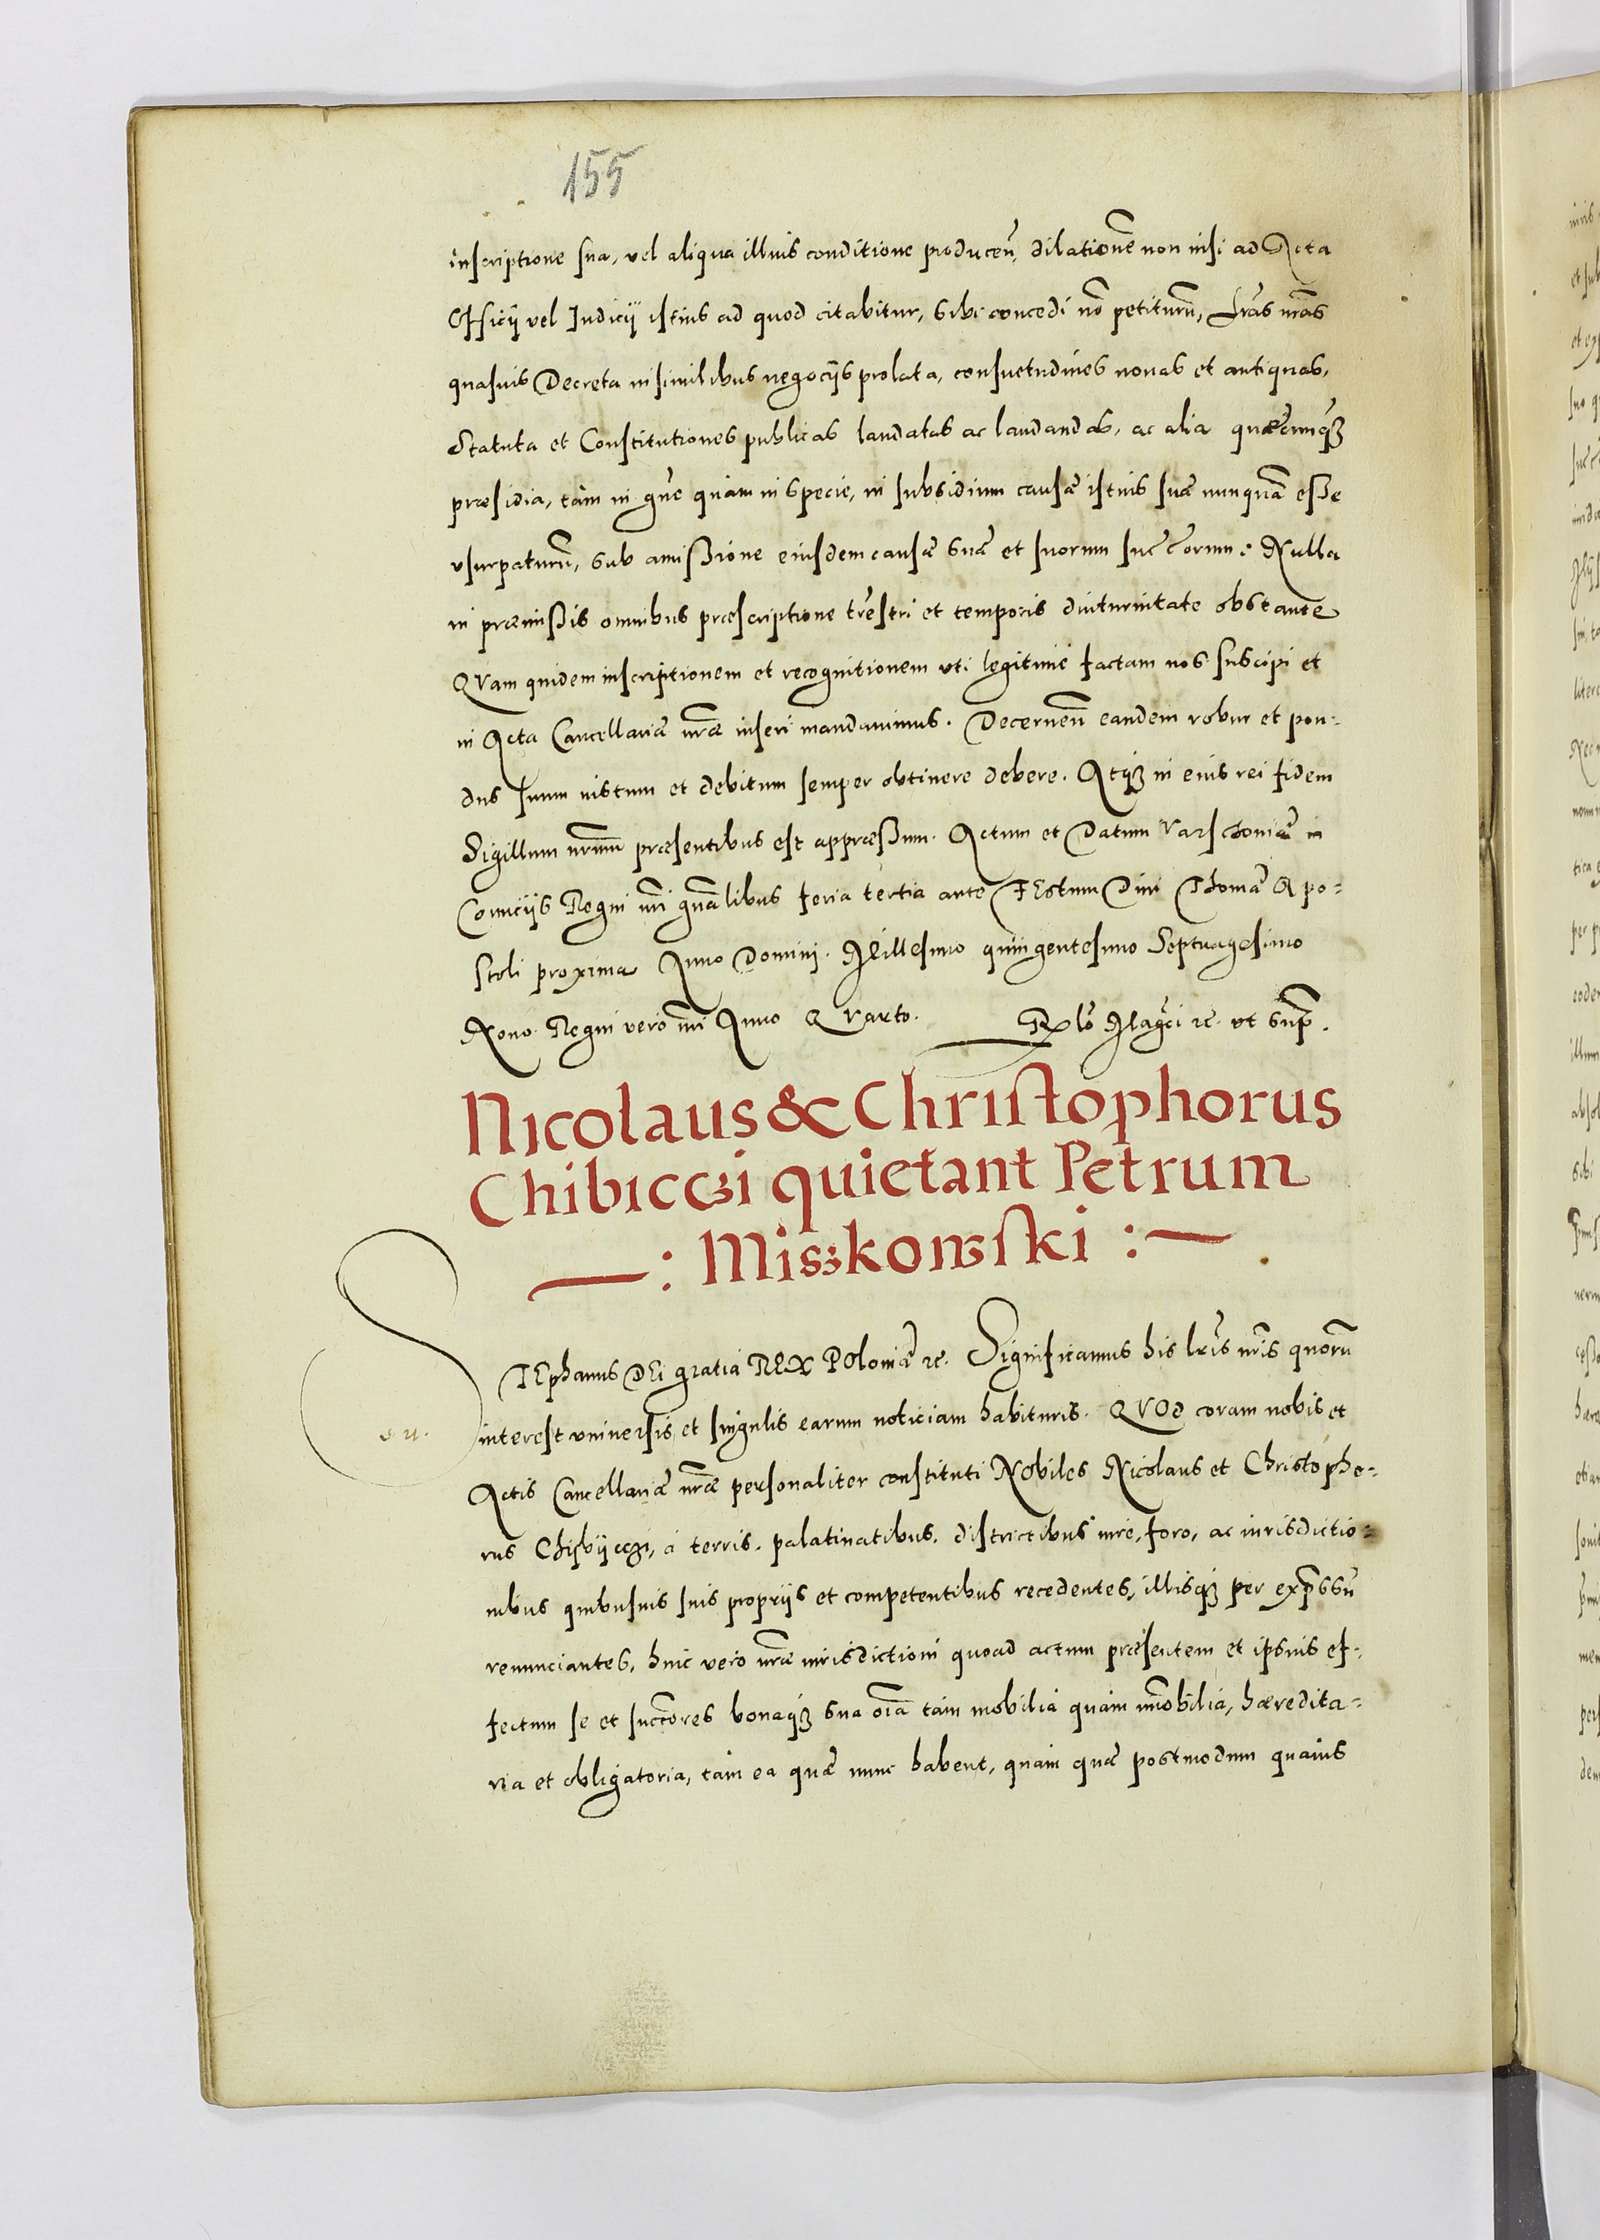 155
inscriptione sua, vel aliqua illius conditione producen̄, dilationē non nisi ad Acta
Officij vel Iudicij istius ad quod citabitur, sibi concedi nō petiturū, Lr̄as nr̄as
quasuis Decreta in similibus negocijs prolata, consuetudines nouas et antiquas,
Statuta et Constitutiones publicas laudatas ac laudandas, ac alia quæcunqȝ
præsidia, tàm in gn̄e quàm in specie, in subsidium causæ istius suæ nunquā esse
vsurpaturū, sub amißione eiusdem causæ suæ et suorum succ̄orum. Nulla
in præmißis omnibus præscriptione tr̄estri et temporis diuturnitate obstante
QVam quidem inscriptionem et recognitionem vti legitimè factam nos suscipi et
in Acta Cancellariæ nr̄æ inseri mandauimus. Decernen̄ eandem robur et pon-
dus suum iustum et debitum semper obtinere debere. Atqȝ in eius rei fidem
Sigillum nr̄um præsentibus est appræßum. Actum et Datum Varschouiæ in
Comicijs Regni nr̄i gn̄alibus feria tertia ante FEstum Diui Thomæ Apo-
stoli proxima Anno Domini. Millesimo quingentesimo Septuagesimo
Nono. Regni verò nr̄i Anno QVarto. Rlō Maḡci rc. vt sup̄.
Nicolaus & Christophorus
Chibicczi quietant Petrum
: Miszkowski :
STEphanus DEi gratia REX POloniæ rc. Significamus his lr̄is nr̄is quorū
interest vniuersis, et singulis earum noticiam habituris. QVOd coram nobis et
Actis Cancellariæ nr̄æ personaliter constituti NObiles Nicolaus et Christopho-
rus Chibijcczi, à terris, palatinatibus, districtibus iure, foro, ac iurisdictio-
nibus quibusuis suis proprijs et competentibus recedentes, illisqȝ per exp̄ssū
renunciantes, huic verò nr̄æ iurisdictioni quoad actum præsentem et ipsius ef-
fectum se et succ̄ores bonaqȝ sua oīa tàm mobilia quàm im̄obilia, hæredita-
ria et obligatoria, tàm ea quæ nunc habent, quàm quæ postmodum quauis